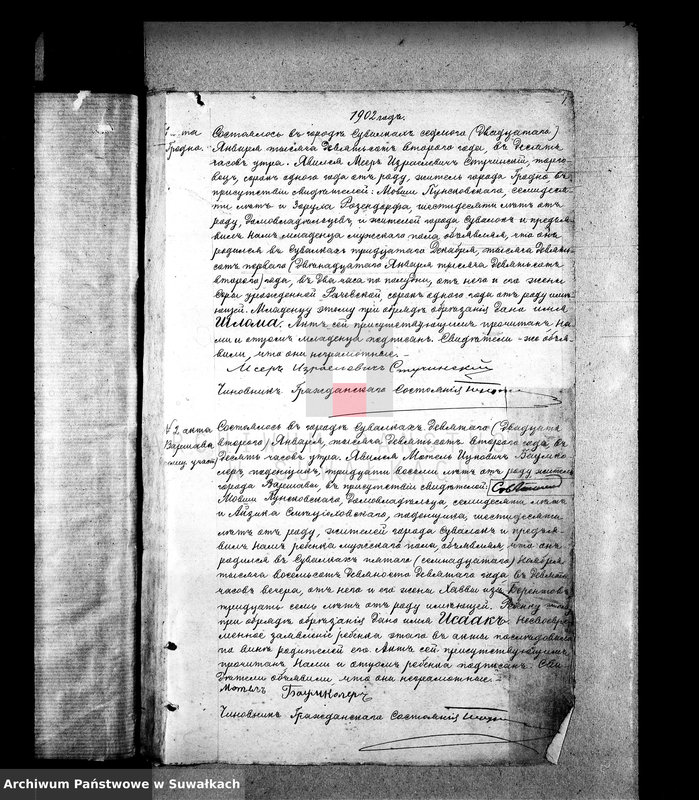 1902 годъ.
Гродно.
Состоялось въ городѣ Сувалкахъ седьмого (двадцатаго)
Января тысяча девятьсотъ второго года, въ десять
часовъ утра. Явился Мееръ Израелевичъ Стучинскій, торго-
вецъ, сорокъ одного года отъ роду, житель города Гродно въ
присутствіи свидѣтелей: Мовши Пунсковскаго, семидеся-
ти лѣтъ и Розендорфа, шестидесяти лѣтъ отъ
роду, домовладѣльцевъ, и жителей города Сувалокъ и предъя-
вилъ Намъ младенца мужскаго пола объявляя, что онъ
родился въ Сувалкахъ тридцатаго Декабря, тысяча девять-
сотъ перваго (двѣнадцатаго Января тысяча девятьсотъ
второго) года, въ два часа по полудни, отъ него и его жены
урожденной сорокъ одного года отъ роду имѣ-
ющей. Младенцу этому при обрядѣ обрѣзанія дано имя
Шлома. Актъ сей присутствующимъ прочитанъ На-
ми и отцомъ младенца подписанъ. Свидѣтели же объя-
вили, что они неграмотные. –
Мееръ Израелевичъ Стучинскій
Чиновникъ Гражданскаго Состоянія
№ 2 акта
Варшава
Состоялось въ городѣ Сувалкахъ девятаго (двадцать
второго) Января, тысяча девятьсотъ второго года, въ
десять часовъ утра. Явился Мотель Ицковичъ Баумко-
леръ, поденщикъ, тридцати восьми лѣтъ отъ роду житель
города Варшавы, въ присутствіи свидѣтелей:
Мовши Пунсковскаго, домовладѣльца, семидесяти лѣтъ
и Айзика поденщика, шестидесяти
лѣтъ отъ роду, жителей города Сувалокъ и предъя-
вилъ Намъ ребенка мужскаго пола, объявляя, что онъ
родился въ Сувалкахъ пятаго (семнадцатаго) Ноября
тысяча восемьсотъ девяносто девятаго года въ
часовъ вечера, отъ него и его жены Хаввы изъ
тридцать семь лѣтъ отъ роду имѣющей. Ребенку
при обрядѣ обрѣзанія дано имя Исаакъ. Несвоевре-
менное заявленіе ребенка этаго въ акты послѣдовало
по винѣ родителей его. Актъ сей присутствующимъ
прочитанъ Нами и отцомъ ребенка подписанъ. Сви-
дѣтели объявили, что они неграмотные. –
Мотель Баумколеръ
Чиновникъ Гражданскаго Состоянія
Archiwum Państwowe w Suwałkach